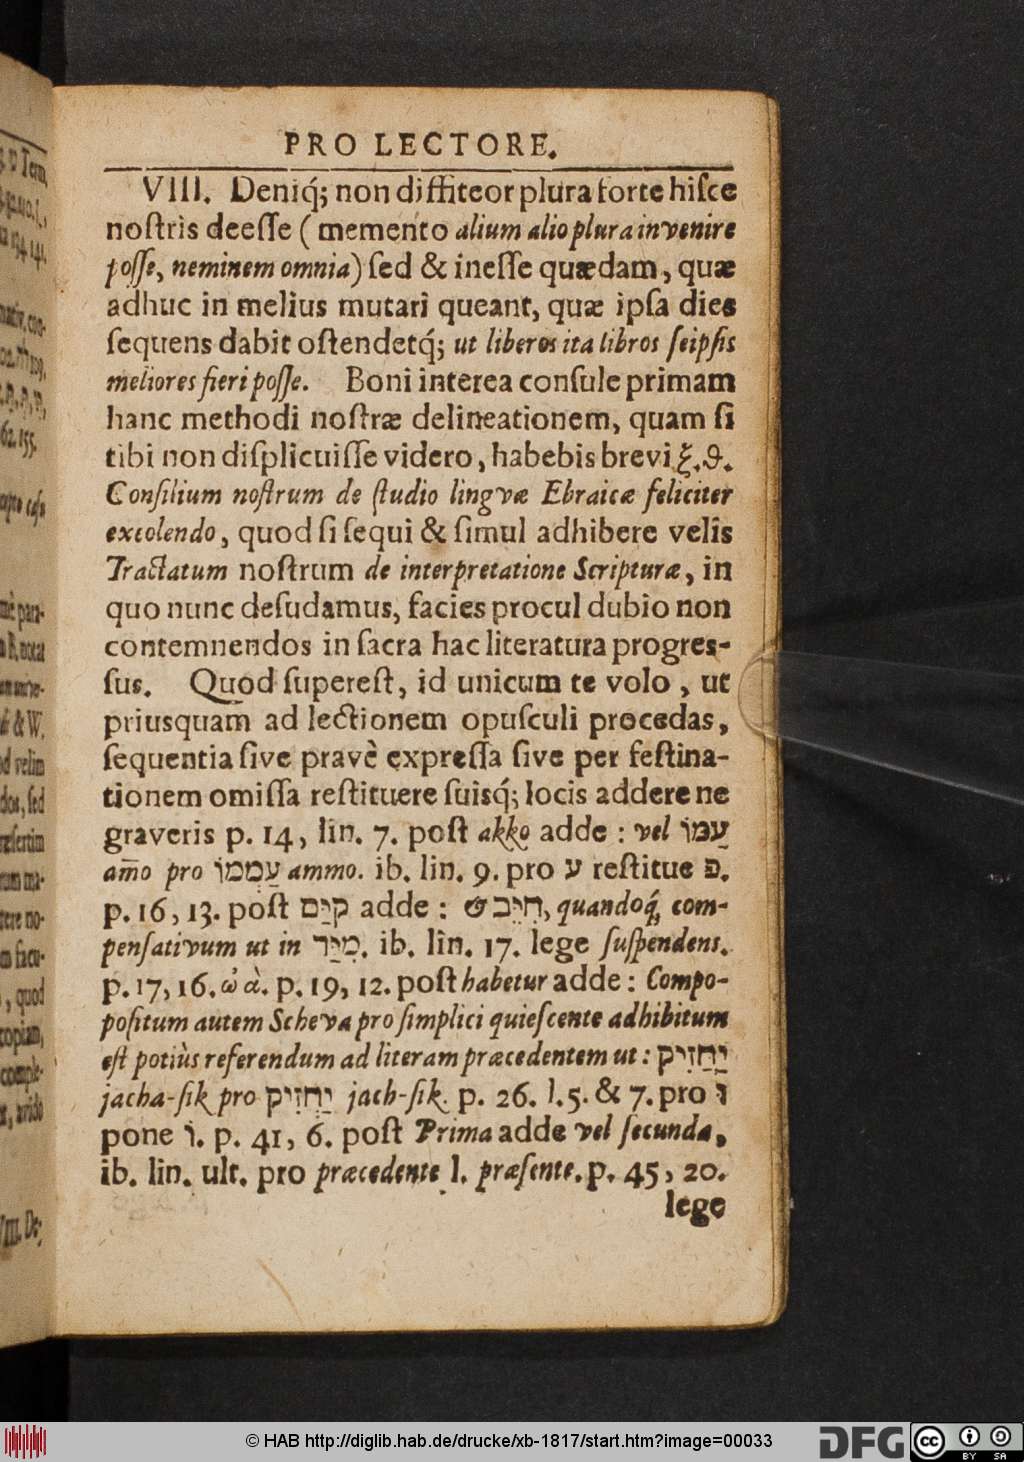 PRO LECTORE.
VIII. Deniq́; non diffiteor plura forte hiſce
noſtris deeſſe ( memento alium alio plura invenire
poſſe, neminem omnia) ſed & ineſſe quædam, quæ
adhuc in melius mutari queant, quæ ipſa dies
ſequens dabit oſtendetq́; ut liberos ita libros ſeipſis
meliores fieri poſſe. Boni interea conſule primam
hanc methodi noſtræ delineationem, quam ſi
tibi non diſplicuiſſe videro, habebis brevi ξ. ϑ.
Conſilium noſtrum de ſtudio lingvæ Ebraicæ feliciter
excolendo, quod ſi ſequi & ſimul adhibere velis
Tractatum noſtrum de interpretatione Scripturæ, in
quo nunc deſudamus, facies procul dubio non
contemnendos in ſacra hac literatura progreſ-
ſus. Quod ſupereſt, id unicum te volo, ut
priusquam ad lectionem opuſculi procedas,
ſequentia ſive pravè expreſſa ſive per feſtina-
tionem omiſſa reſtituere ſuisq́; locis addere ne
graveris p. 14, lin. 7. poſt akko adde : vel עַמּוֹ
am̄o pro עַמְמוֹ ammo. ib. lin. 9. pro ע reſtitue פּ.
p. 16, 13. poſt קיַּם adde : חִיֵּב, quandoq́; com-
penſativum ut in מִיַּר. ib. lin. 17. lege ſuſpendens.
p. 17, 16. ὠ ὰ. p. 19, 12. poſt habetur adde : Compo-
poſitum autem Scheva pro ſimplici quieſcente adhibitum
eſt potiùs referendum ad literam præcedentem ut : יַחֲזִיק
jacha-ſik pro יַחְזִיק jach-ſik. p. 26. l. 5. & 7. pro וּ
pone וֹ. p. 41, 6. poſt Prima adde vel ſecunda,
ib. lin. ult. pro præcedente l. præſente. p. 45, 20.
lege
© HAB http://diglib.hab.de/drucke/xb-1817/start.htm?image=00033
DFG
cc BY SA